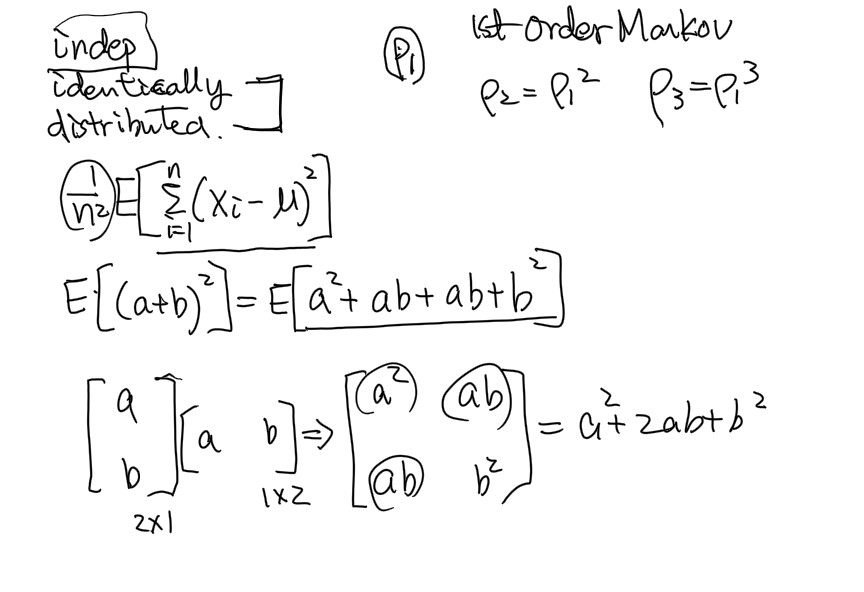 indep
identically
distributed.
ρ₁
1st order Markov
ρ₂ = ρ₁² ρ₃ = ρ₁³
1/n² E[∑ᵢ₌₁ⁿ (xi - μ)²]
E[(a+b)²] = E[a² + ab + ab + b²]
[a b] [a b] ⇒ [a² ab ab b²] = a² + 2ab + b²
2×1 1×2